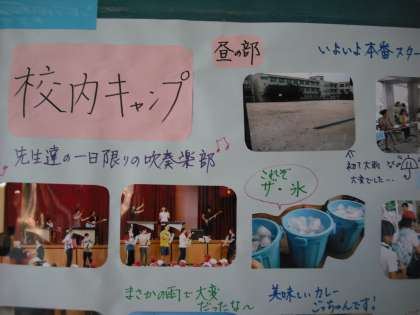 校内キャンプ
昼の部
いよいよ本番スター
先生達の一日限りの吹奏楽部
大変でした‥
これぞ
ザ・氷
まさかの雨で大変
だったな〜
美味しいカレー
ごっちゃんです!